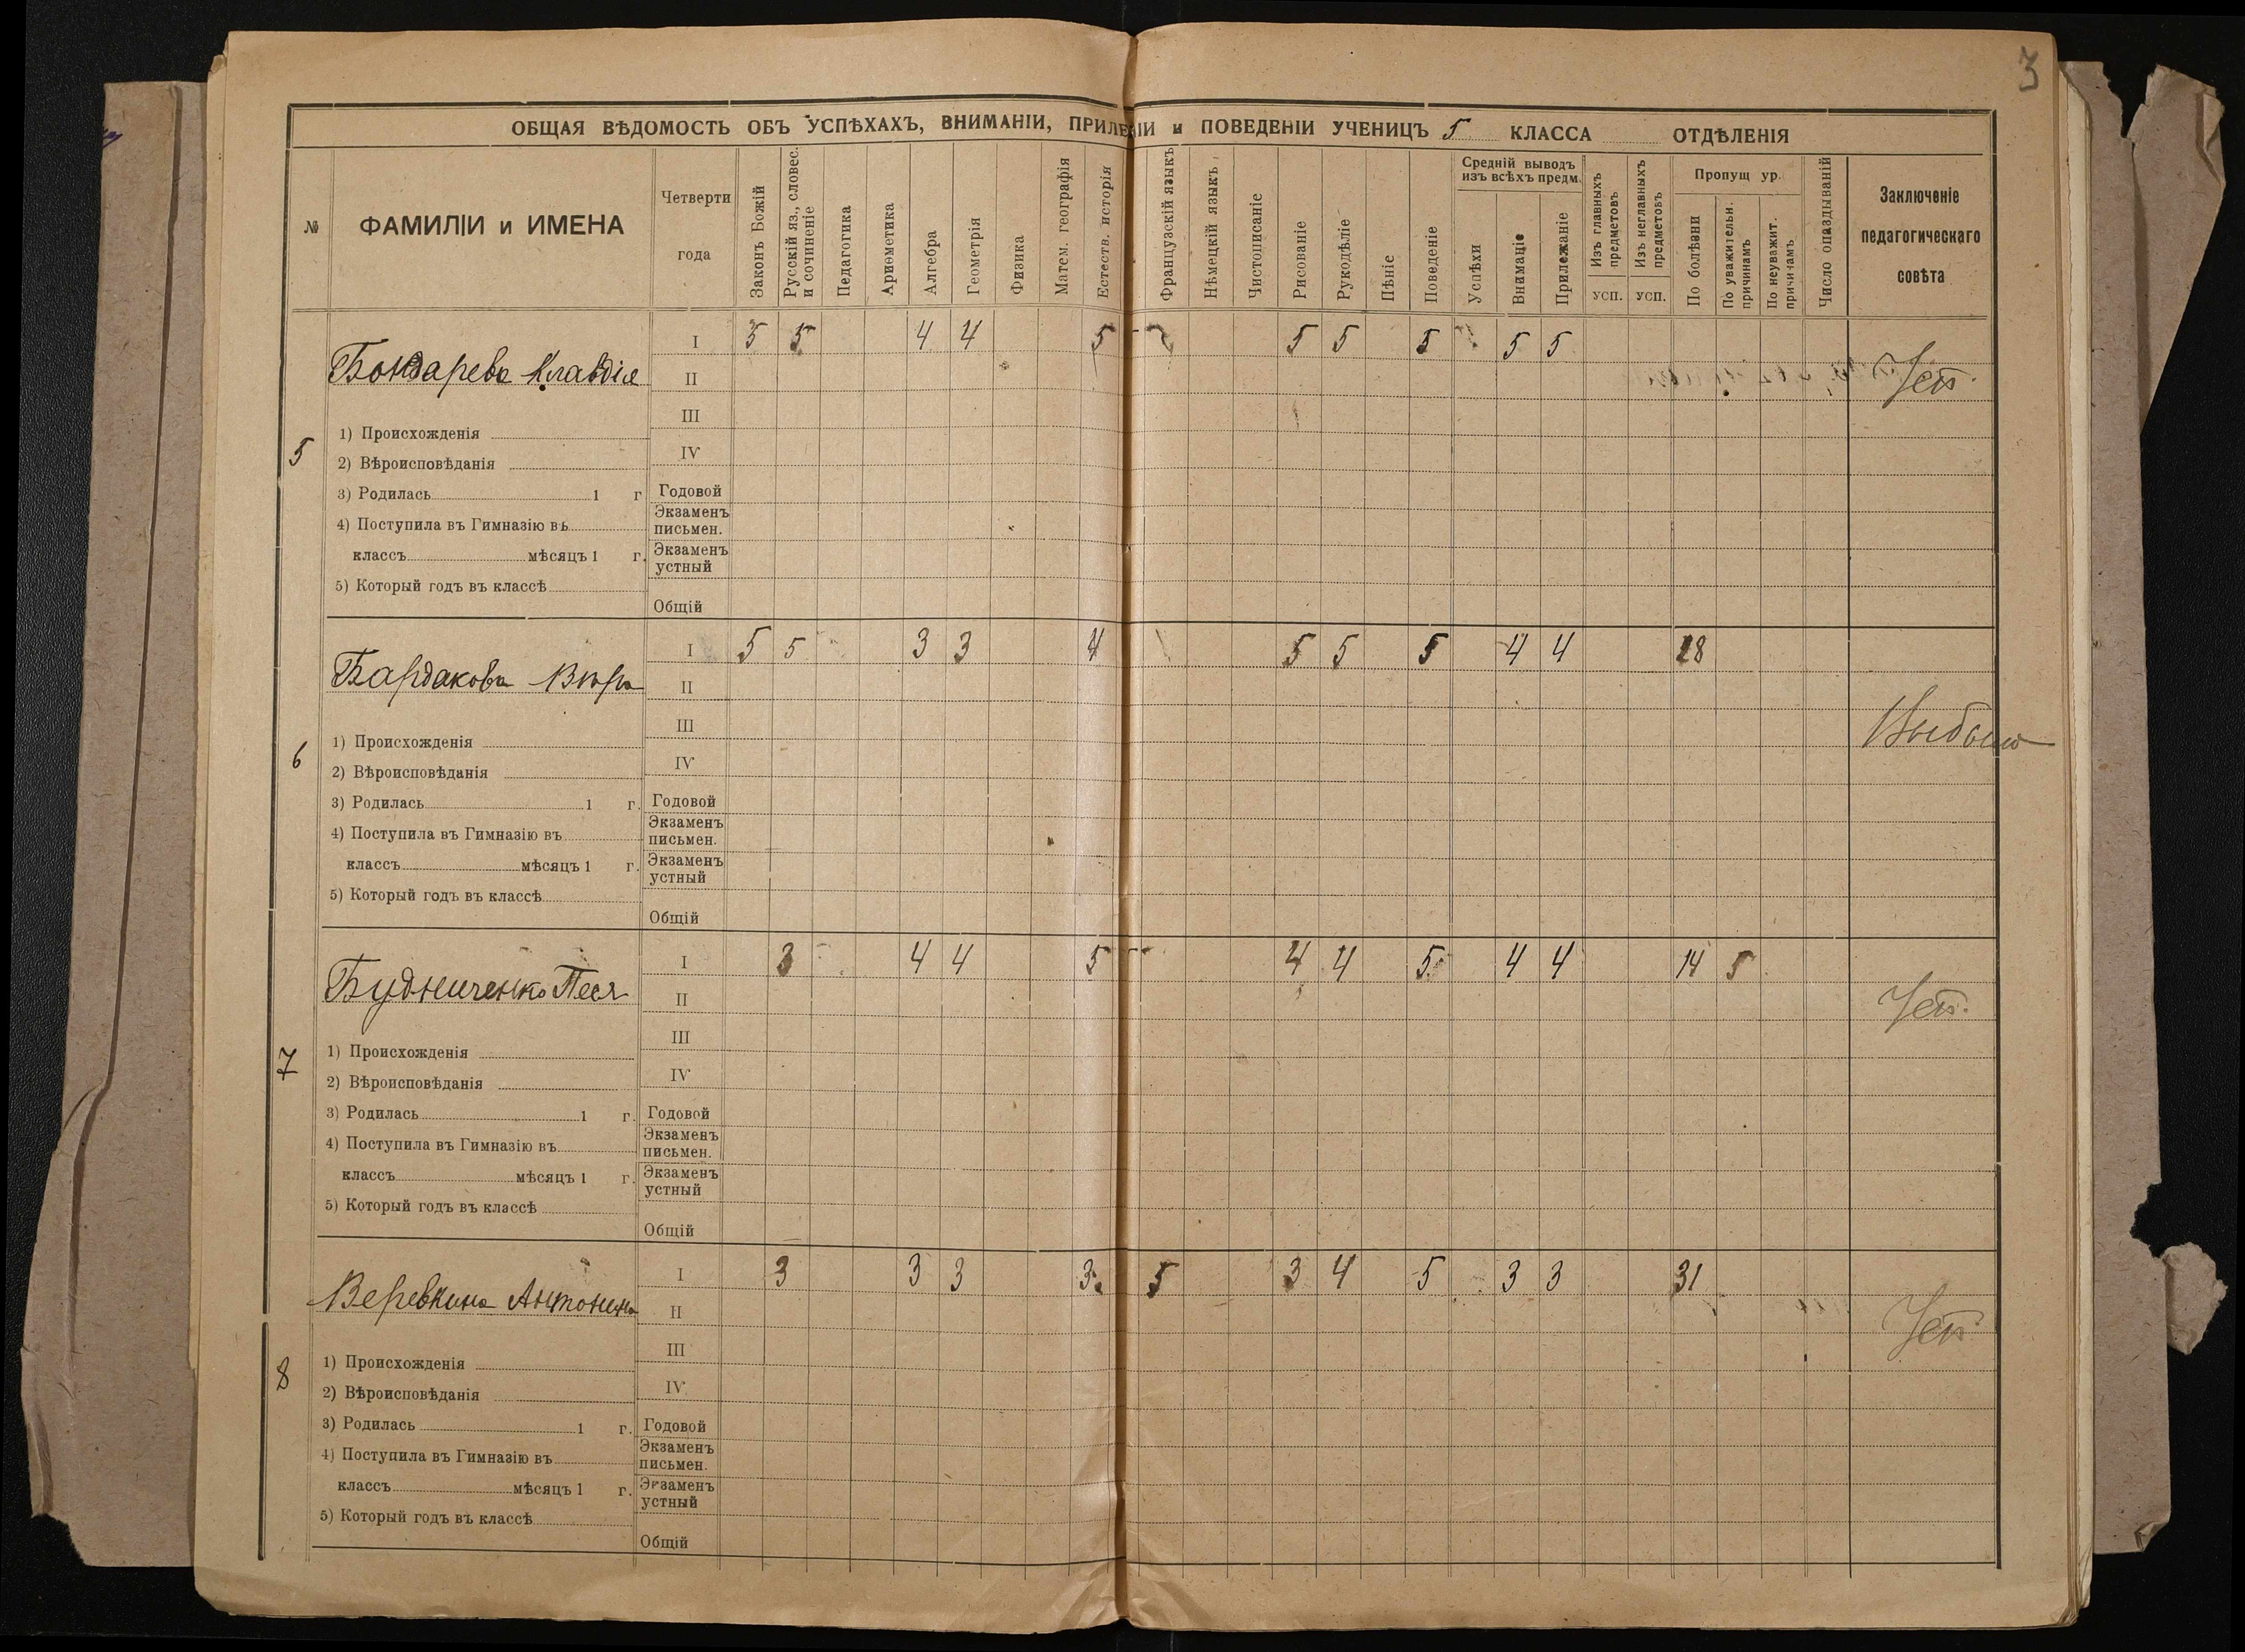 3
ОБЩАЯ ВѢДОМОСТЬ ОБЪ УСПѢХАХЪ, ВНИМАНІИ, ПРИЛЕ ІИ и ПОВЕДЕНІИ УЧЕНИЦЪ 5 КЛАССА ОТДѢЛЕНІЯ
№
ФАМИЛІИ и ИМЕНА
Четверти
года
Законъ Божій
Русскій яз., словес.
и сочиненіе
Педагогика
Ариѳметика
Алгебра
Геометрія
Физика
Матем. географія
Естеств. исторія
Французскій языкъ
Нѣмецкій языкъ
Чистописаніе
Рисованіе
Рукодѣліе
Пѣніе
Поведеніе
Средній выводъ
изъ всѣхъ предм.
Успѣхи
Вниманіе
Прилежаніе
Изъ главныхъ
предметовъ
усп.
Изъ неглавныхъ
предметовъ
усп.
Пропущ ур.
По болѣзни
По уважительн.
причинамъ
По неуважит.
причинамъ
Число опаздываній
Заключеніе
педагогическаго
совѣта
5
Бондарева Клавдія
I 5 5 4 4 5 5 5 5 5 5
II
III
1) Происхожденія
IV
2) Вѣроисповѣданія
3) Родилась 1 г
Годовой
4) Поступила въ Гимназію въ
Экзаменъ
письмен.
классъ мѣсяцъ 1 г.
Экзаменъ
устный
5) Который годъ въ классѣ
Общій
6
Бардакова Вѣра
I 5 5 3 3 4 5 5 5 4 4 28
II
III
Выбыла
1) Происхожденія
IV
2) Вѣроисповѣданія
3) Родилась 1 г.
Годовой
4) Поступила въ Гимназію въ
Экзаменъ
письмен.
классъ мѣсяцъ 1 г.
Экзаменъ
устный
5) Который годъ въ классѣ
Общій
7
Будниченко Песя
I 3 4 4 5 4 4 5 4 4 14 5
II
III
1) Происхожденія
IV
2) Вѣроисповѣданія
3) Родилась 1 г.
Годовой
4) Поступила въ Гимназію въ
Экзаменъ
письмен.
классъ мѣсяцъ 1 г.
Экзаменъ
устный
5) Который годъ въ классѣ
Общій
8
Веревкина Антонина
I 3 3 3 3 5 3 4 5 3 3 31
II
III
1) Происхожденія
IV
2) Вѣроисповѣданія
3) Родилась 1 г.
Годовой
4) Поступила въ Гимназію въ
Экзаменъ
письмен.
классъ мѣсяцъ 1 г.
Экзаменъ
устный
5) Который годъ въ классѣ
Общій